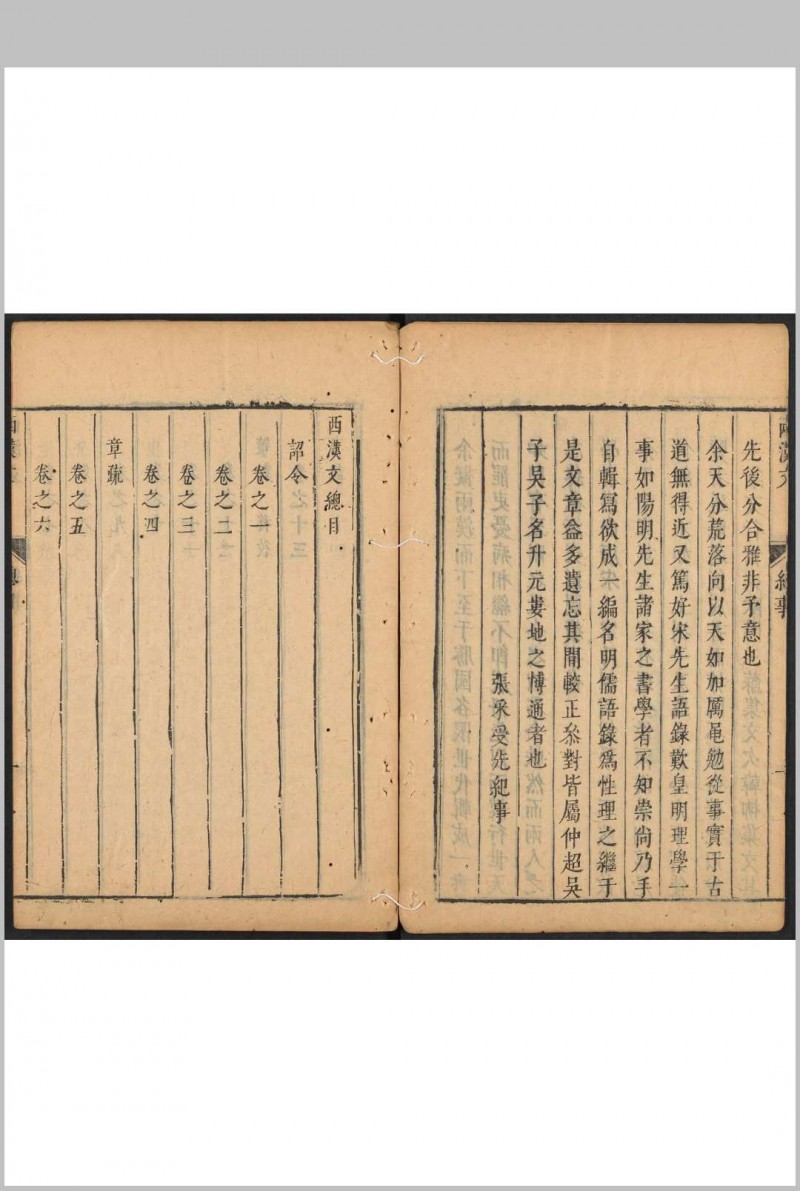 兩漢文
紀事
先後分合雅非予意也
余天分荒落向以天如加厲黽勉從事實于古
道無得近又篤好宋先生語錄歎皇明理學一
事如陽明先生諸家之書學者不知崇尚乃手
自輯寫欲成一編名明儒語錄爲性理之繼于
是文章益多遺忘其間較正叅對皆屬仲超吳
子吳子名升元婁地之博通者也
張采受先紀事
西漢文總目
詔令
卷之一
卷之二
卷之三
卷之四
章疏
卷之五
卷之六